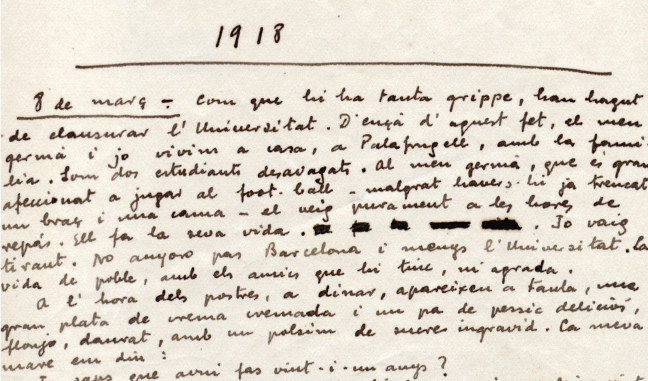 1918
8 de març - Com que hi ha tanta grippe, han hagut
de clausurar l'Universitat. D'ençà d'aquest fet, el meu
germà i jo vivim a casa, a Palafrugell, amb la famí-
lia. Som dos estudiants desvagats. Al meu germà, que és gran
afeccionat a jugar al foot-ball - malgrat havers-hi ja trencat
un braç i una cama - el veig purament a les hores de
repàs. Ell fa la seva vida. Jo vaig
tirant. No anyoro pas Barcelona i menys l'Universitat. La
vida de poble, amb els amics que hi tinc, m'agrada.
A l'hora dels postres, a dinar, apareixen a taula, una
gran plata de crema cremada i un pa de pessic deliciós,
flonjo, daurat, amb un polsim de sucre ingravid. La meva
mare em diu:
saps que avui fas vint-i-un anys?